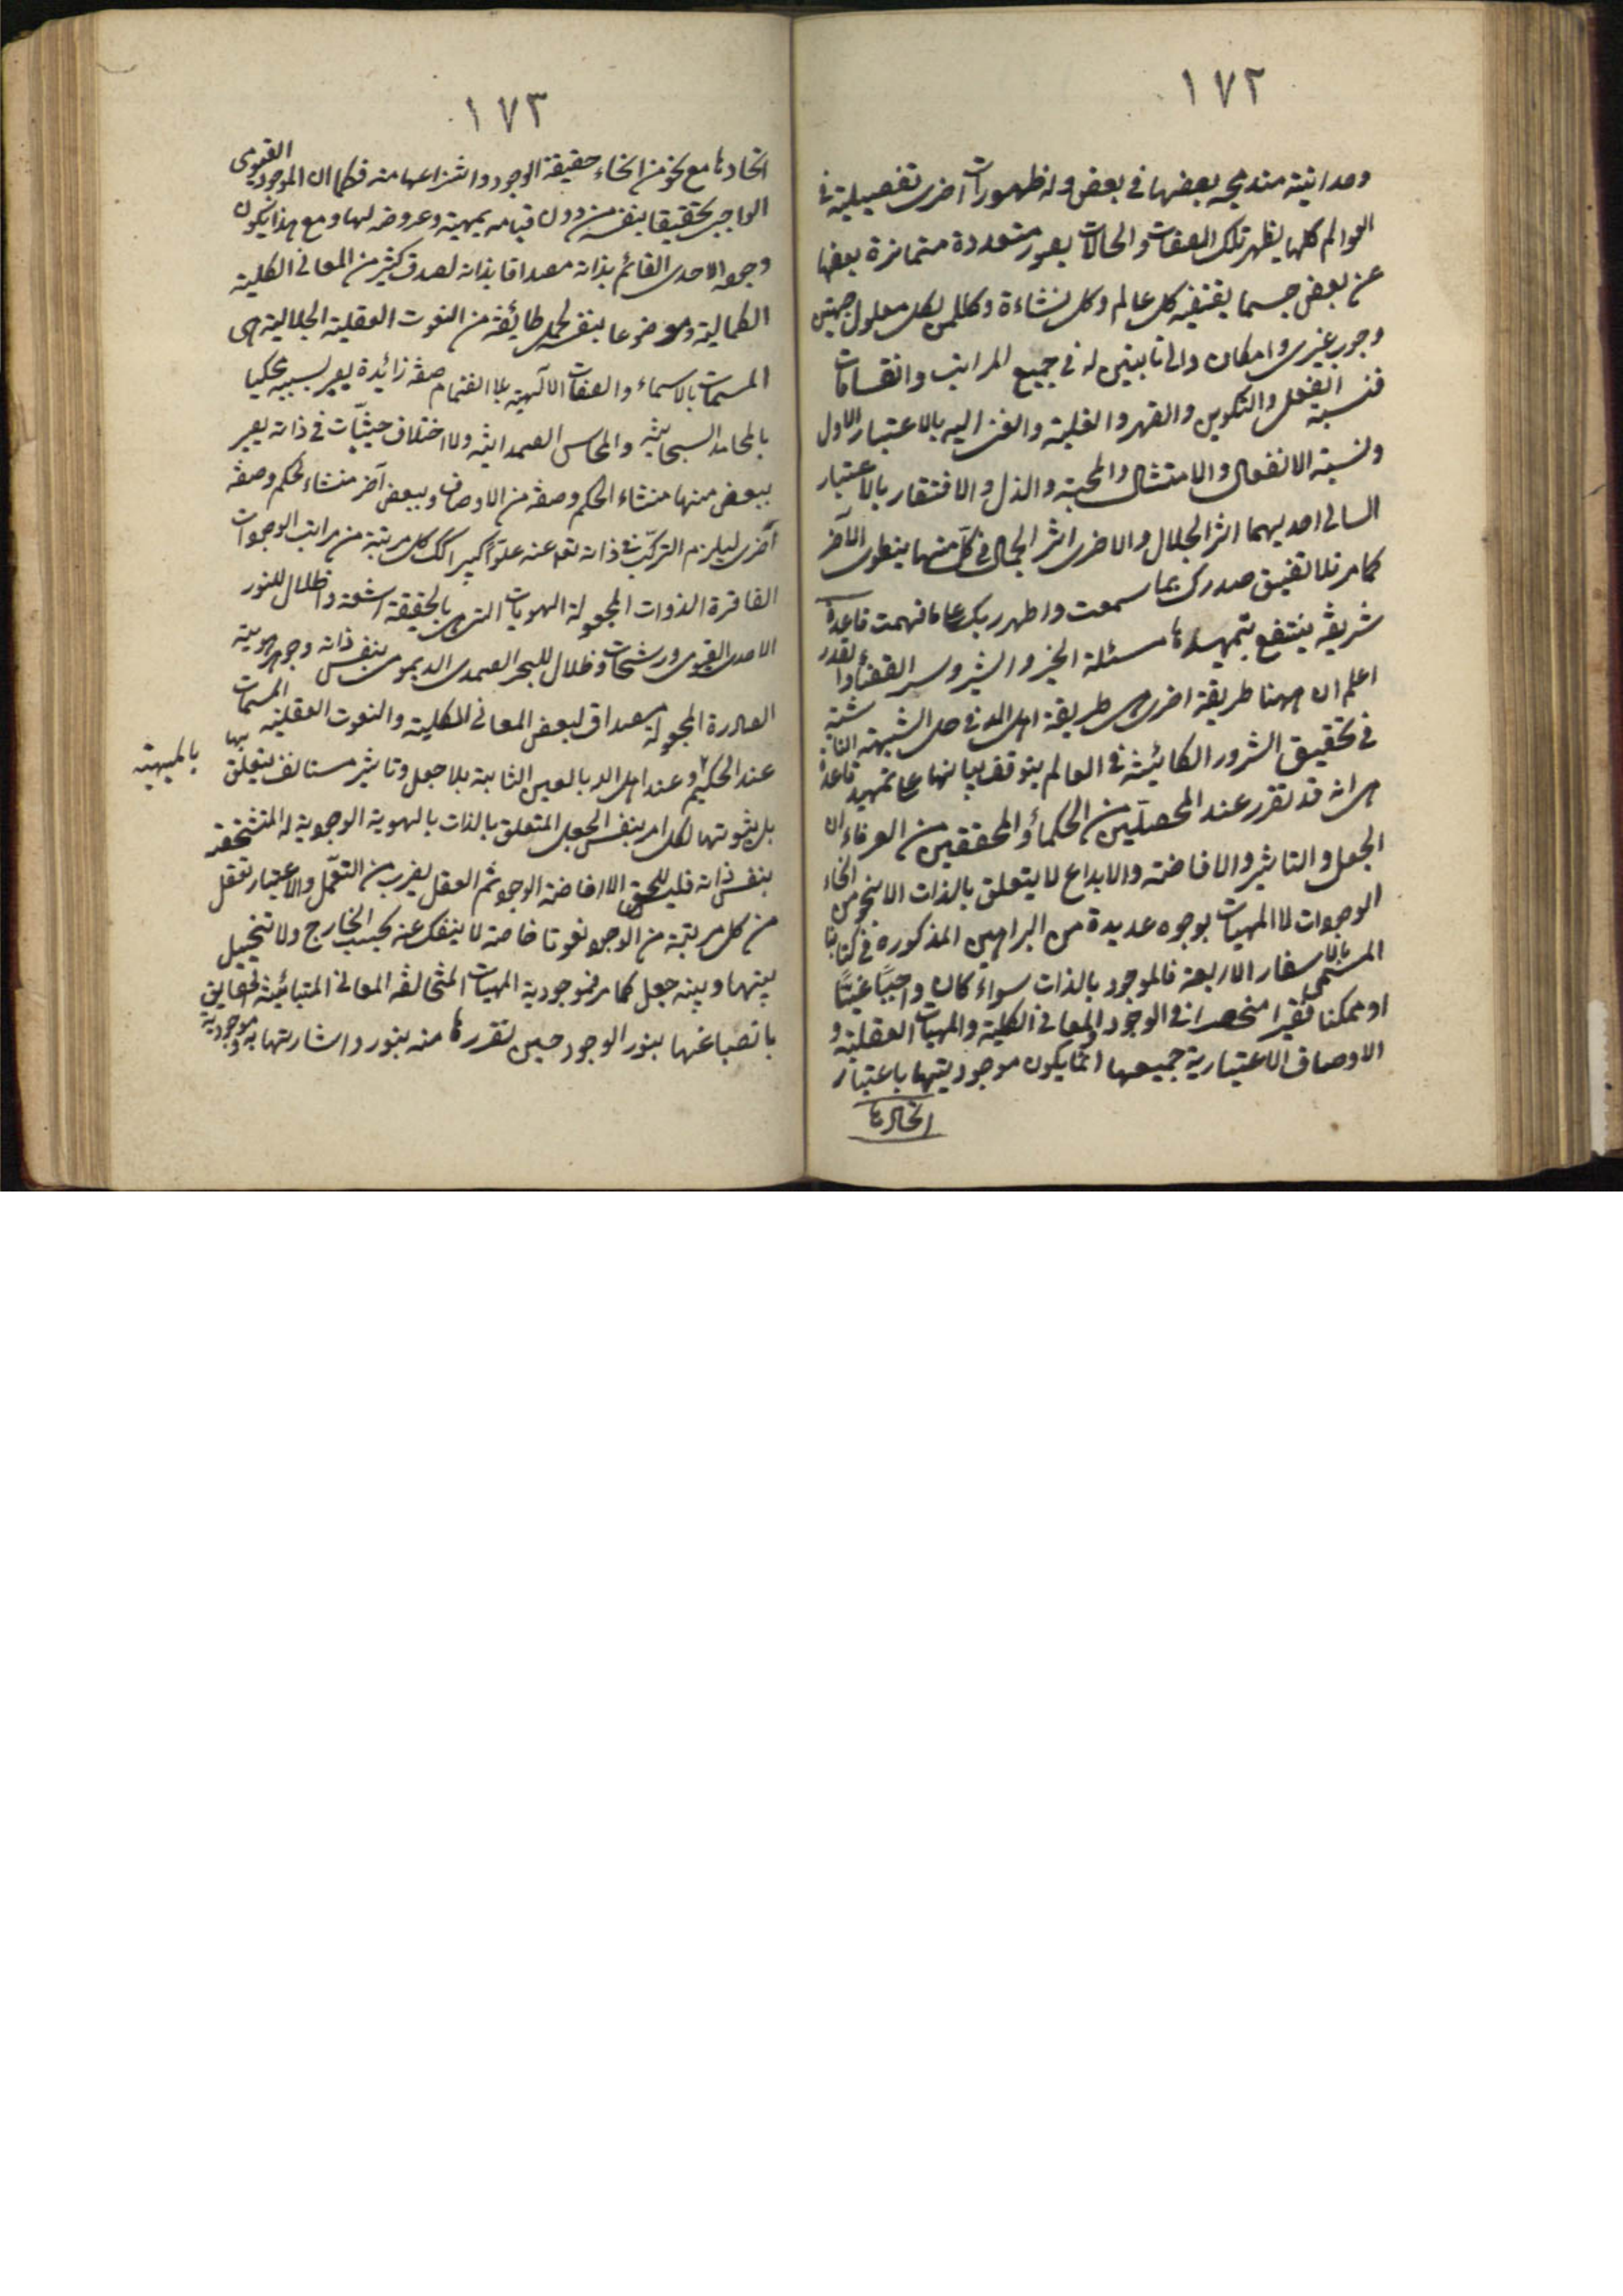 ١٧٢
وحدانيته مندمجه بعضها في بعض وله ظهورات اخرى تفصيلية في
العوالم كلها يظهر تلك الصفات والحالات بصور متعددة متمايزة بعضها
عن بعض حسبما يقتضيه كل عالم وكل نشاءة وكلما لكل معلول جهتين
وجوب غيرى وامكان ذاتي ثابتين له في جميع المراتب وانقسامات
فنسبته الفعل والتكوين والقهر والغلبة والغنى اليه بالاعتبار الاول
ونسبته الانفعال والامتثال والمحبة والذل والافتقار بالاعتبار
الثاني احديهما اثر الجلال والاخرى اثر الجمال في كل منهما ينطوى الآخر
كما مر فلا تضيق صدرك بما سمعت واطهر ربك على ما فهمت قاعدة
شريفه ينتفع بتمهيدها مسئلة الخير والشر وسر القضاء والقدر
اعلم ان ههنا طريقة اخرى هى طريقة اهل الله في حل الشبهة الثانية
في تحقيق الشرور الكائنة في العالم يتوقف بيانها على تمهيد قاعدة
هى انه قد تقرر عند المحصلين من الحكماء والمحققين من العرفاء ان
الجعل والتاثير والافاضة والابداع لا يتعلق بالذات الا بنحو من انحاء
الوجودات لا المهيات بوجوه عديدة من البراهين المذكورة في كتابنا
المسمى بالاسفار الاربعة فالموجود بالذات سواء كان واجبًا غنيًا
او ممكنا فقيرا منحصر في الوجود والمعاني الكلية والمهيات العقلية و
الاوصاف الاعتبارية جميعها انما يكون موجوديتها باعتبار
اتحادها
١٧٣
اتحادها مع نحو من انحاء حقيقة الوجود وانتزاعها منه فكما ان الموجود القيومى
الواجبى تحقيقا بنفسه من دون قيامه بمهية وعروضه لها ومع هذا يكون
وجوده الاحدى القائم بذاته مصداقا بذاته لصدق كثير من المعاني الكلية
الكمالية وموضوعا بنفسه لحمل طائفة من النعوت العقلية الجلالية هى
المسمات بالاسماء والصفات الالهية بلا انضمام صفة زائدة يصير بسببه محكيا
بالمحامد السبحانية والمحاسن الصمدانية ولا اختلاف حيثيات في ذاته يصير
ببعض منها منشاء الحكم وصفة من الاوصاف وببعض آخر منشاء لحكم وصفة
اخرى ليلزم التركب في ذاته تعا عنه علوًا كبيرا كك كل مرتبة من مراتب الوجودات
الفاقرة الذوات المجعولة الهويات التى هى بالحقيقة اشعة واظلال للنور
الاحدى القيومى ورشحات وظلال للبحر الصمدى الديمومى بنفس ذاته وجوهر هويته
الصادرة المجعولة مصداق لبعض المعاني الكلية والنعوت العقلية المسمات
عند الحكيم بها بالمهية وعند اهل الله بالعين الثابتة بلا جعل وتاثير مستانف يتعلق
بل ثبوتها لكل امر بنفس الجعل المتعلق بالذات بالهوية الوجودية له المتشخصة
بنفس ذاته فليس للحق الا افاضة الوجود ثم العقل يضرب من التعمل والاعتبار تعقل
من كل مرتبة من الوجود نعوتا خاصة لا ينفك عنه بحسب الخارج ولا يتخيل
بينها وبينه جعل كما مر فموجودية المهيات المتخالفة المعاني المتبائنة الحقايق
بانصباغها بنور الوجود حين تقررها منه بنور واشارتها به وموجودية